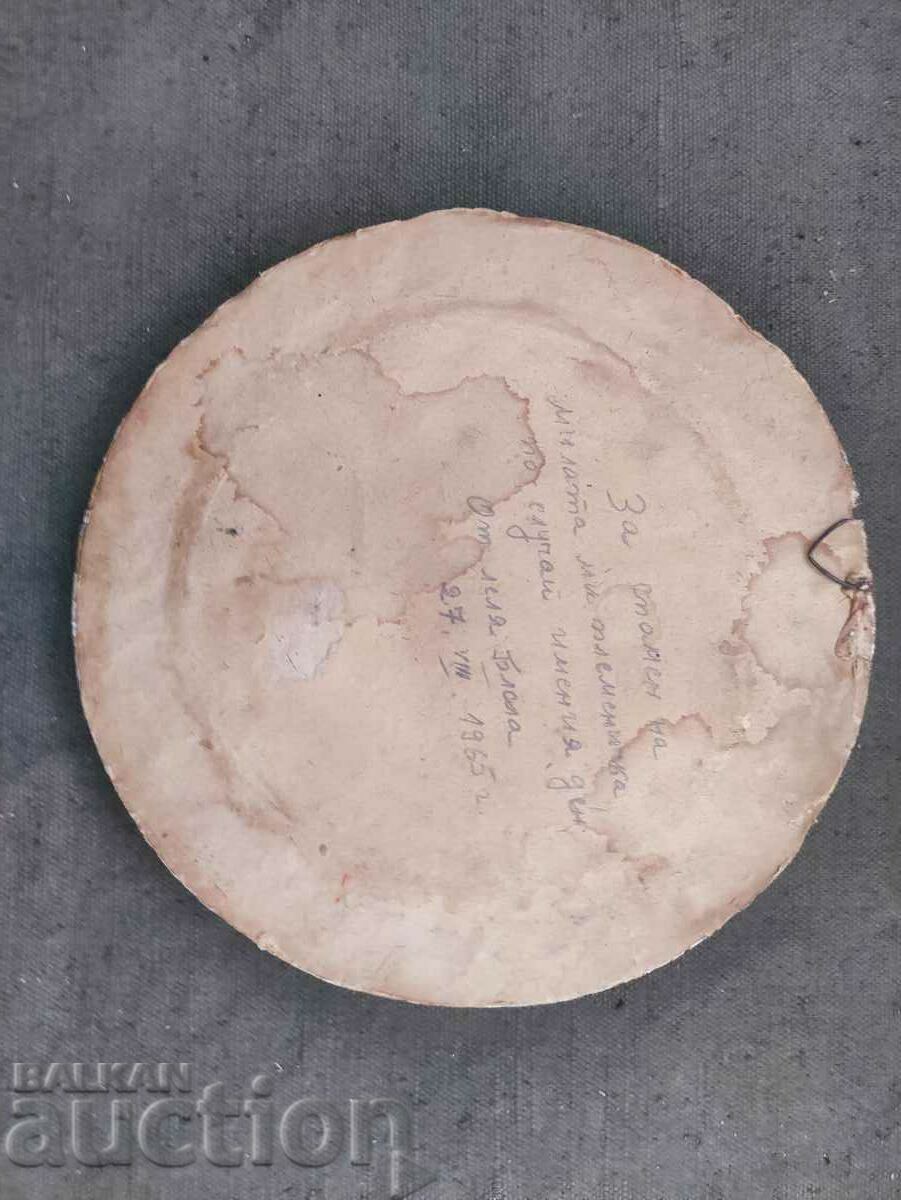 За спомен на
милата ми племеничка
по случай именния ден
От леля
27. VIII. 1965 г.
BALKAN
auction